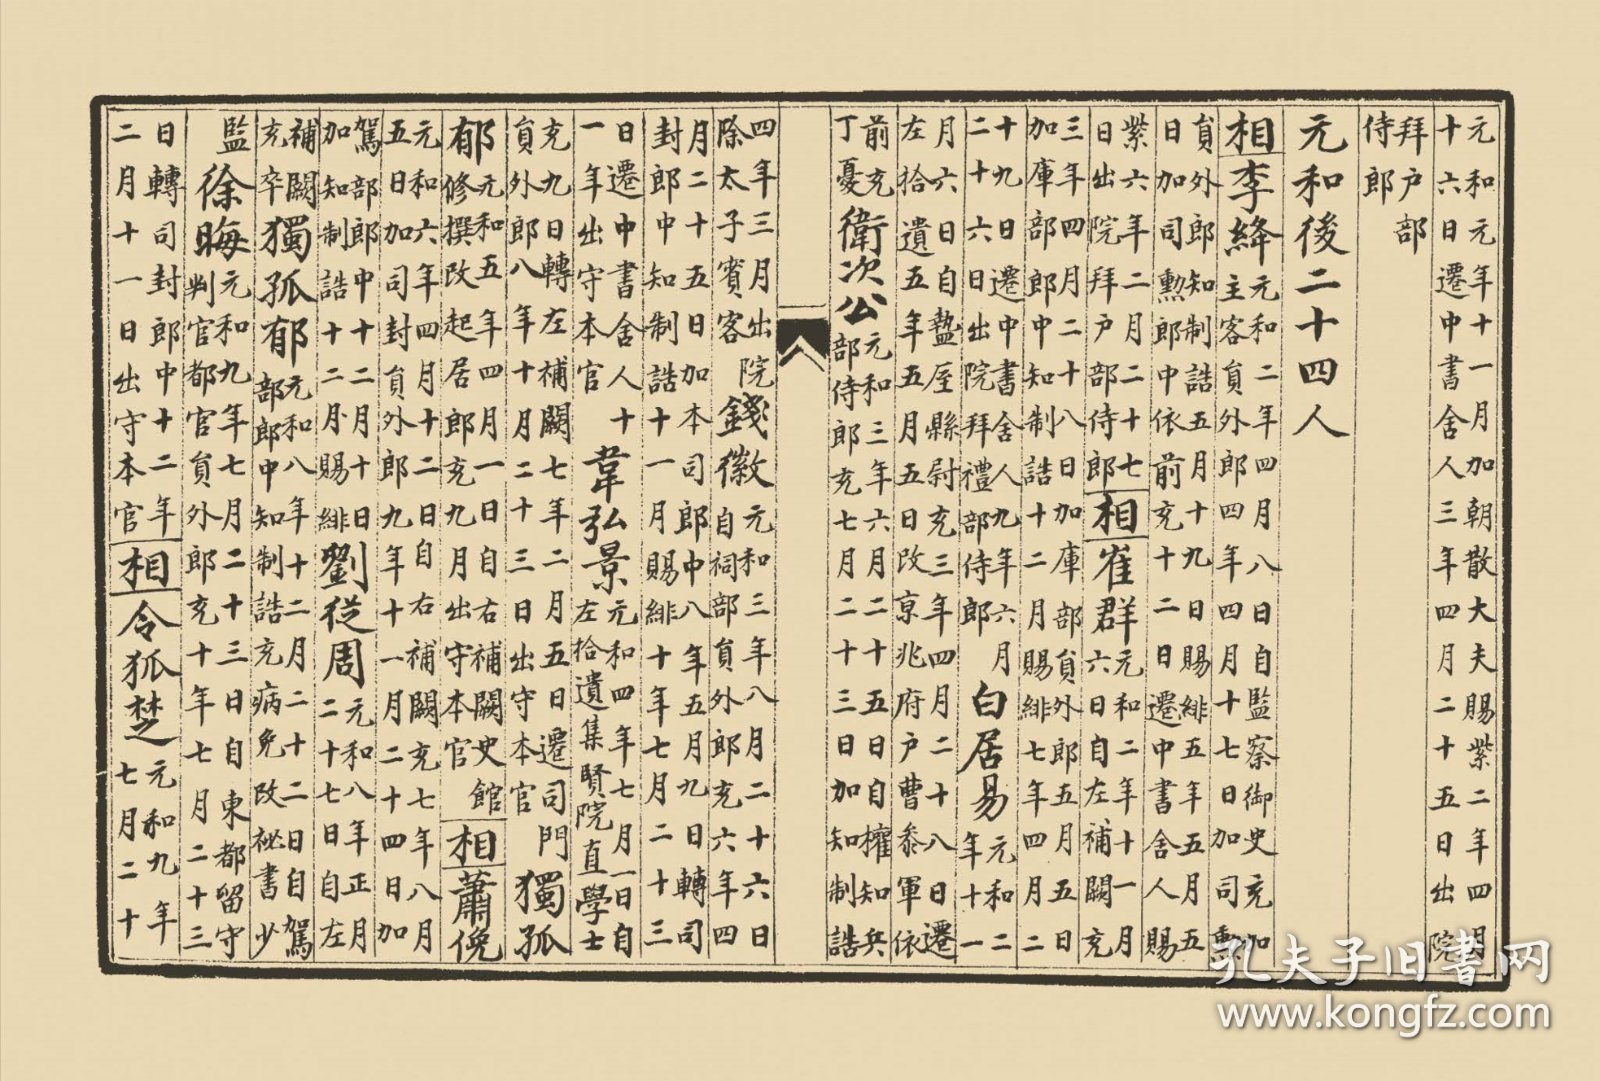 元和元年十一月加朝散大夫賜紫二年四月
十六日遷中書舍人三年四月二十五日出院
拜户部
侍郎
元和後二十四人
相李絳元和二年四月八日自監察御史充加
主客員外郎四年四月十七日加司勲
員外郎知制誥五月十九日賜緋五年五月五
日加司勲郎中依前充十二日遷中書舍人賜
紫六年二月二十七
日出院拜户部侍郎
相崔群元和二年十一月
六日自左補闕充
三年四月二十八日加庫部員外郎五月五日
加庫部郎中知制誥十二月賜緋七年四月二
十九日遷中書舍人九年六月
二十六日出院拜禮部侍郎
白居易元和二
年十一
月六日自盩厔縣尉充三年四月二十八日遷
左拾遺五年五月五日改京兆府户曹叅軍依
前充
丁憂
衛次公元和三年六月二十五日自權知兵
部侍郎充七月二十三日加知制誥
四年三月出院
除太子賓客
錢徽元和三年八月二十六日
自祠部員外郎充六年四
月二十五日加本司郎中八年五月九日轉司
封郎中知制誥十一月賜緋十年七月二十三
日遷中書舍人十
一年出守本官
韋弘景元和四年七月一日自
左拾遺集賢院直學士
充九日轉左補闕七年二月五日遷司門
員外郎八年十月二十三日出守本官
獨孤
郁元和五年四月一日自右補闕史館
修撰改起居郎充九月出守本官
相蕭俛
元和六年四月十二日自右補闕充七年八月
五日加司封員外郎九年十一月二十四日加
駕部郎中十二月十日
加知制誥十二月賜緋
劉從周元和八年正月
二十七日自左
補闕
充卒
獨孤郁元和八年十二月二十二日自駕
部郎中知制誥充病免改祕書少
監
徐晦元和九年七月二十三日自東都留守
判官都官員外郎充十年七月二十三
日轉司封郎中十二年
二月十一日出守本官
相令狐楚元和九年
七月二十
孔夫子旧书网
www.kongfz.com